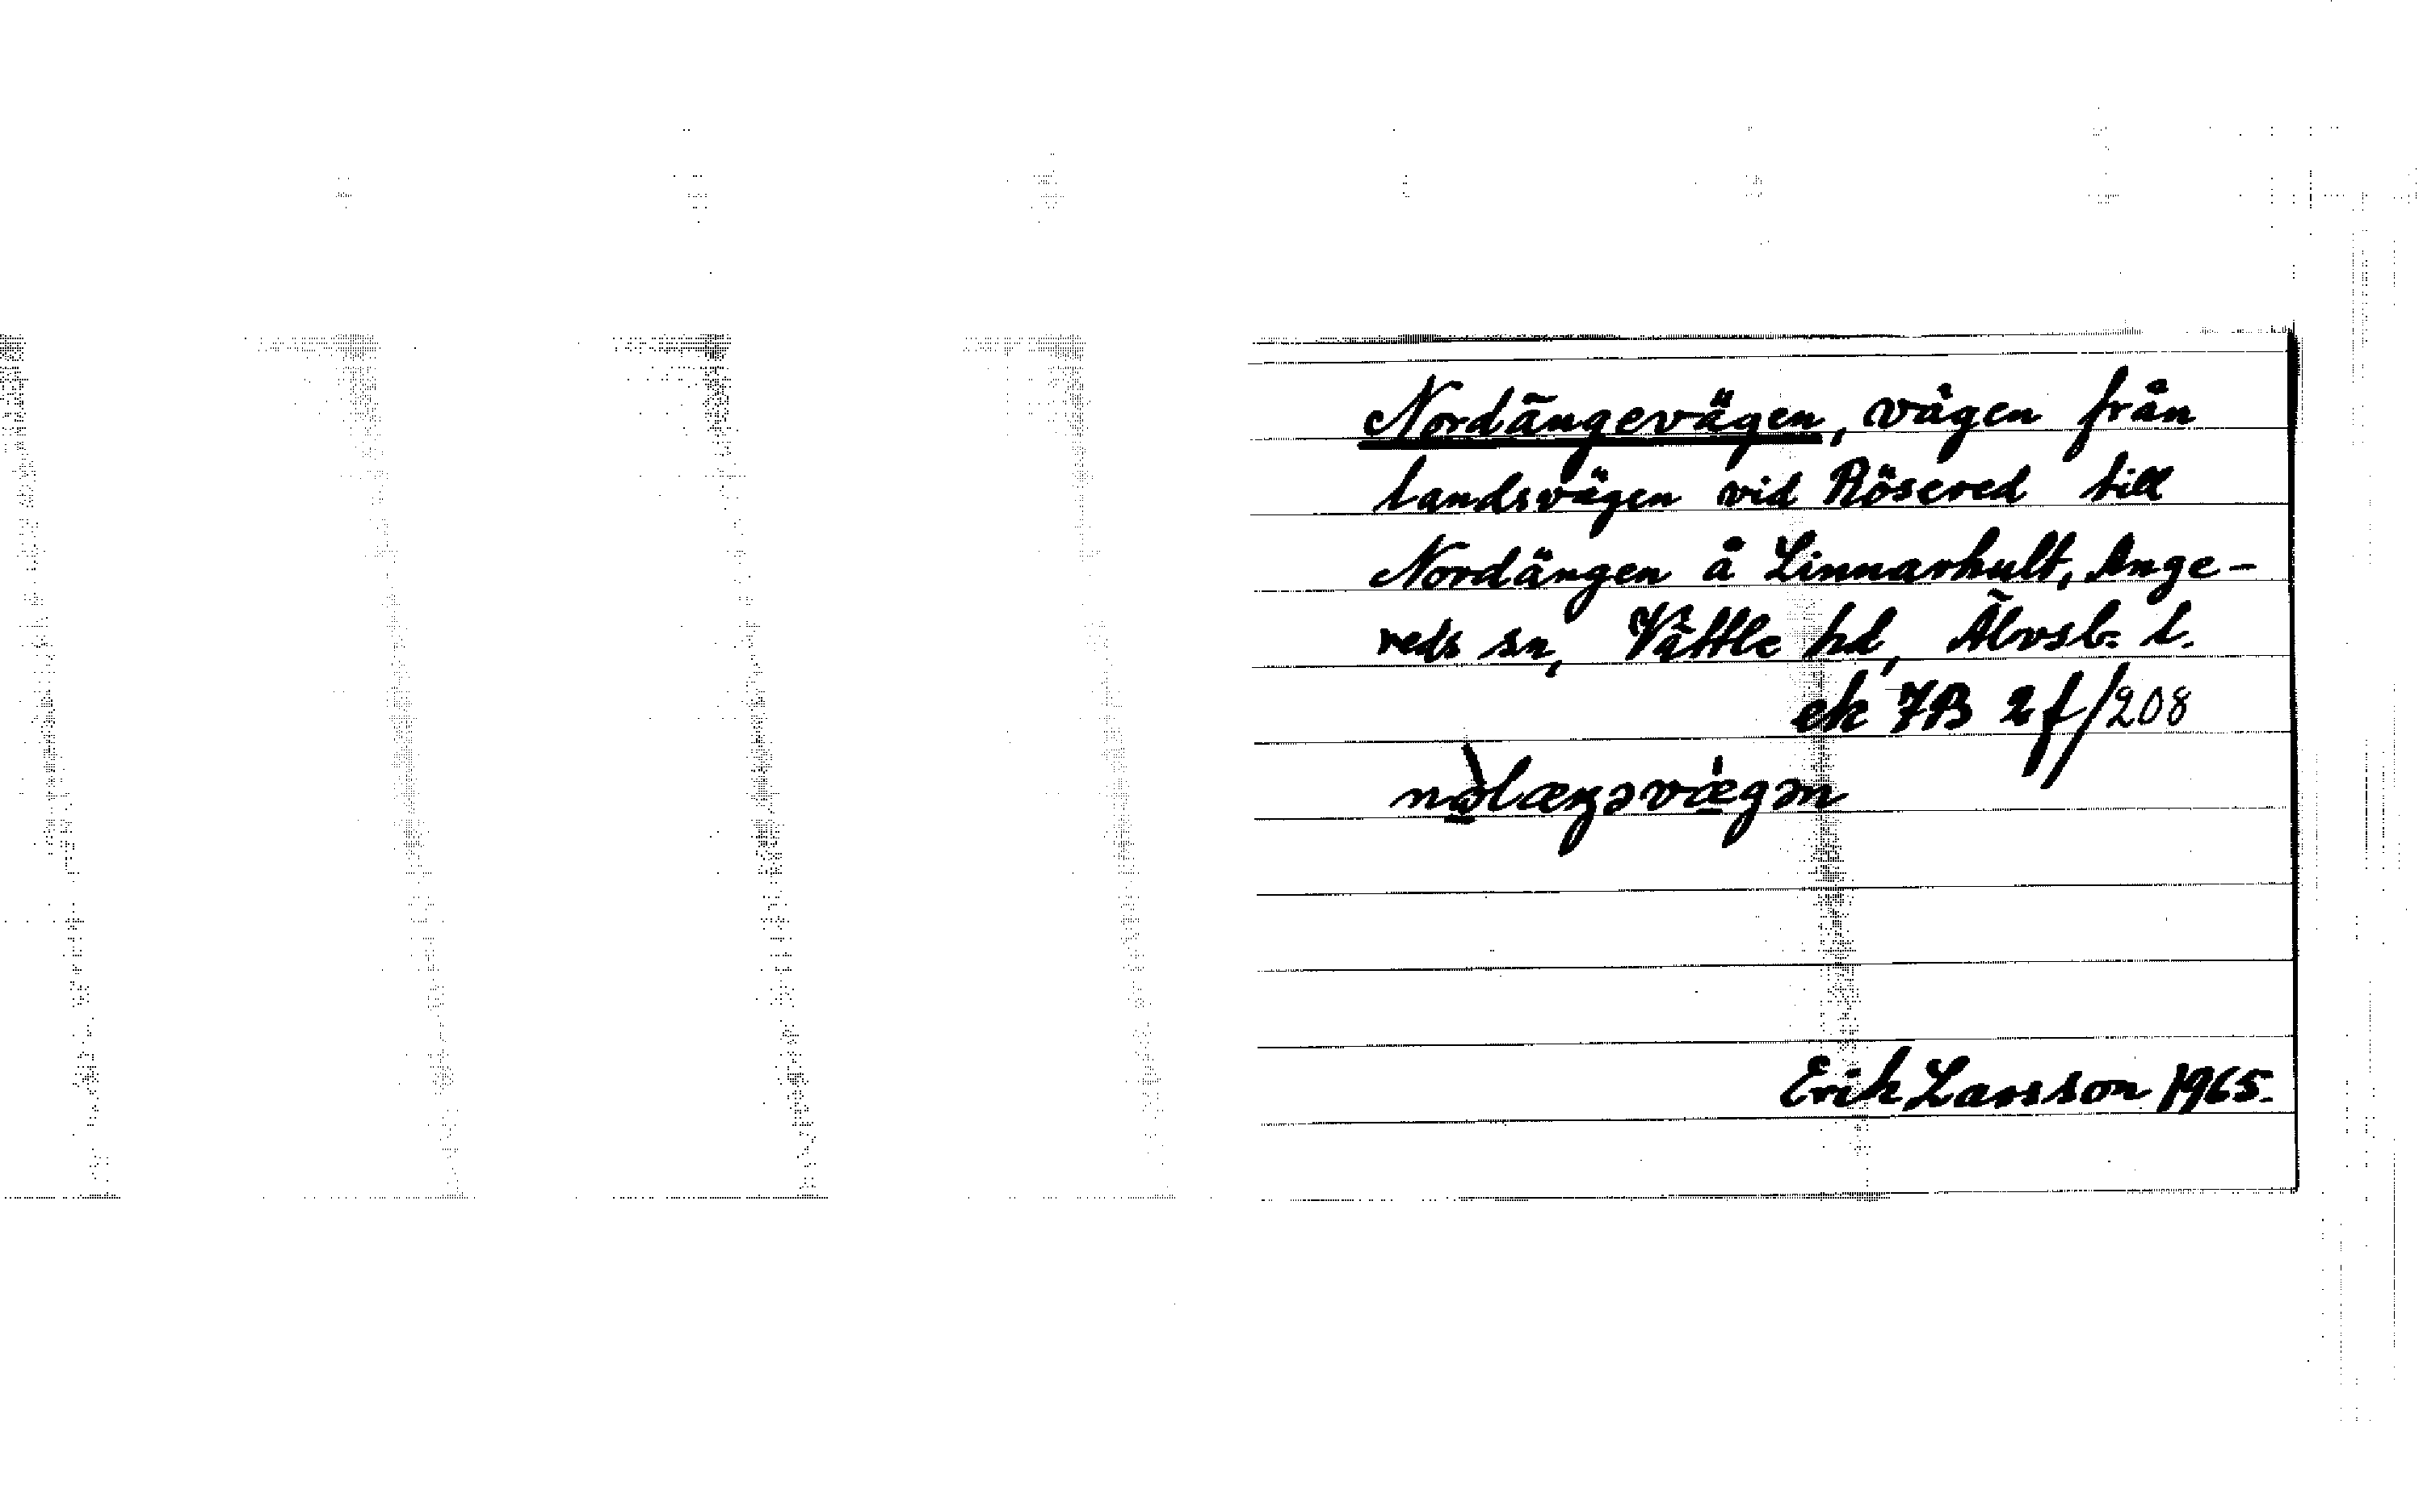 Nordängevägen, vägen från
landsvägen vid Rösered till
Nordängen å Linnarhult, Ange-
reds sn, Vättle hd, Älvsb. l.
ek 7B 2f/208
nǫ̀læŋəvǽ̨gən
Erik Larsson 1965.